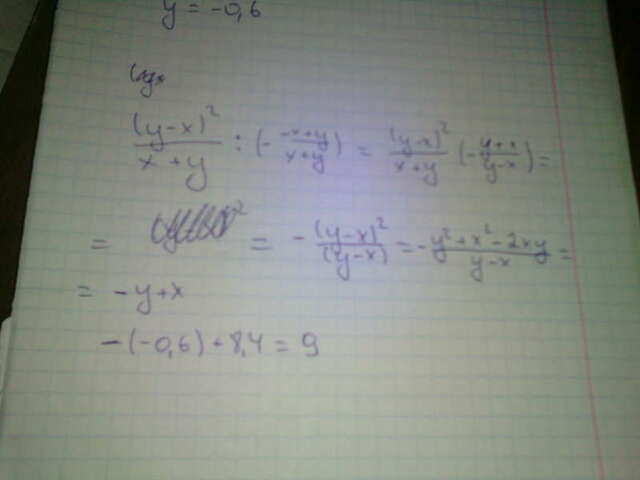 y = -0,6
(y-x)²/(x+y) : (- (-x+y)/(x+y)) = (y-x)²/(x+y) (- (y+x)/(y-x)) =
= = - (y-x)²/(y-x) = - (y²+x²-2xy)/(y-x) =
= -y+x
-(-0,6)+8,4 = 9